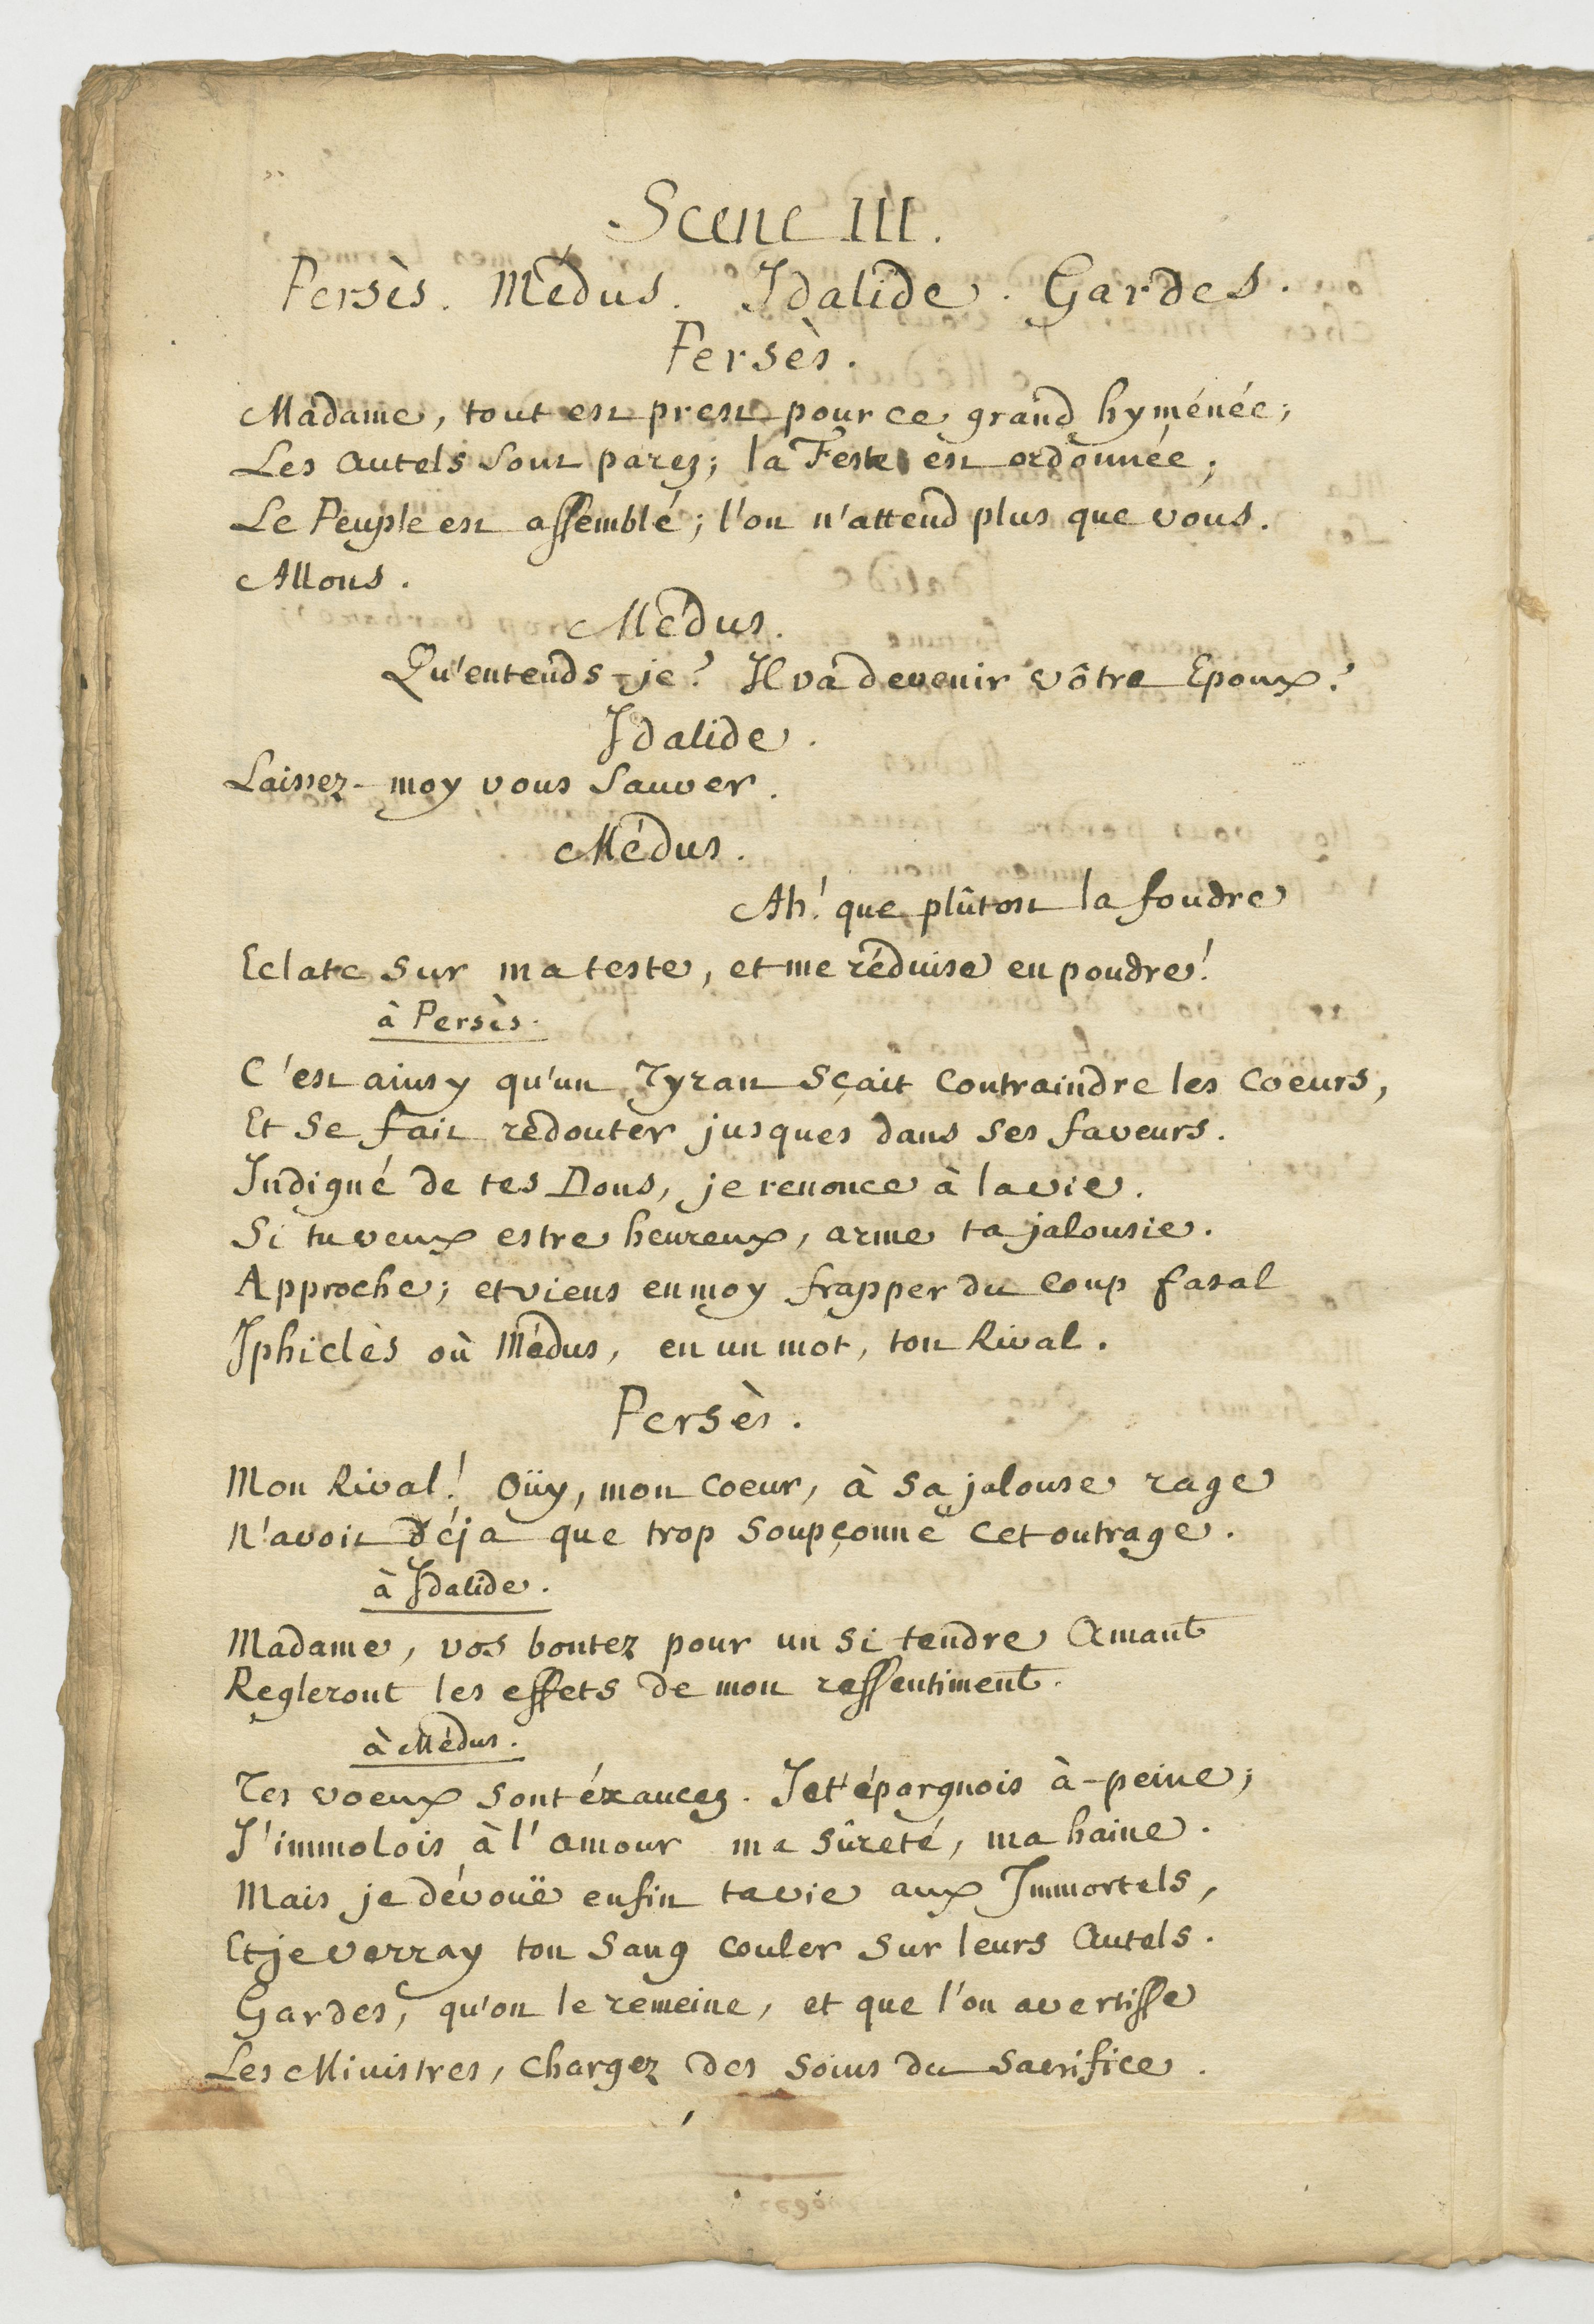 Scene III.
Persès. Médus. Idalide. Gardes.
Persès.
Madame, tout est prest pour ce grand hyménée;
Les Autels sont parez; la Feste est ordonnée;
Le Peuple est assemblé; l'on n'attend plus que vous.
Allons.
Médus.
Qu'entends-je? Il va devenir vôtre Epoux?
Idalide.
Laissez-moy vous sauver.
Médus.
Ah! que plûtost la foudre
Eclate sur ma teste, et me réduise en poudre!
à Persès.
C'est ainsy qu'un Tyran sçait contraindre les coeurs,
Et se fait redouter jusques dans ses faveurs.
Indigné de tes Dons, je renonce à la vie.
Si tu veux estre heureux, arme ta jalousie.
Approche; et viens en moy frapper du coup fatal
Iphiclès où Médus, en un mot, ton Rival.
Persès.
Mon Rival! Oüy, mon coeur, à sa jalouse rage
N'avoit déja que trop soupçonné cet outrage.
à Idalide.
Madame, vos bontez pour un si tendre Amant
Regleront les effets de mon ressentiment.
à Médus.
Tes voeux sont éxaucez. Je t'épargnois à-peine;
J'immolois à l'amour ma sûreté, ma haine.
Mais je dévoüe enfin ta vie aux Immortels,
Et je verray ton sang couler sur leurs Autels.
Gardes, qu'on le remeine, et que l'on avertisse
Les Ministres, chargez des soins du sacrifice.